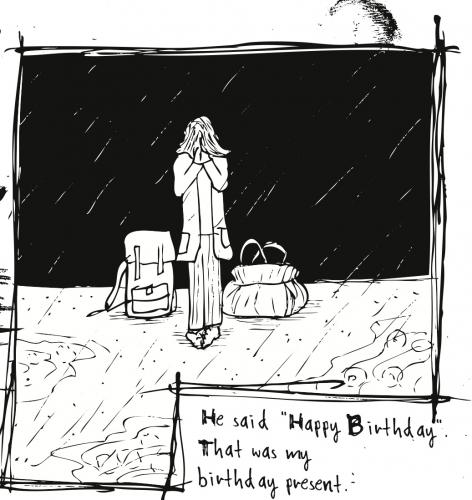 He said "Happy Birthday".
That was my
birthday present.